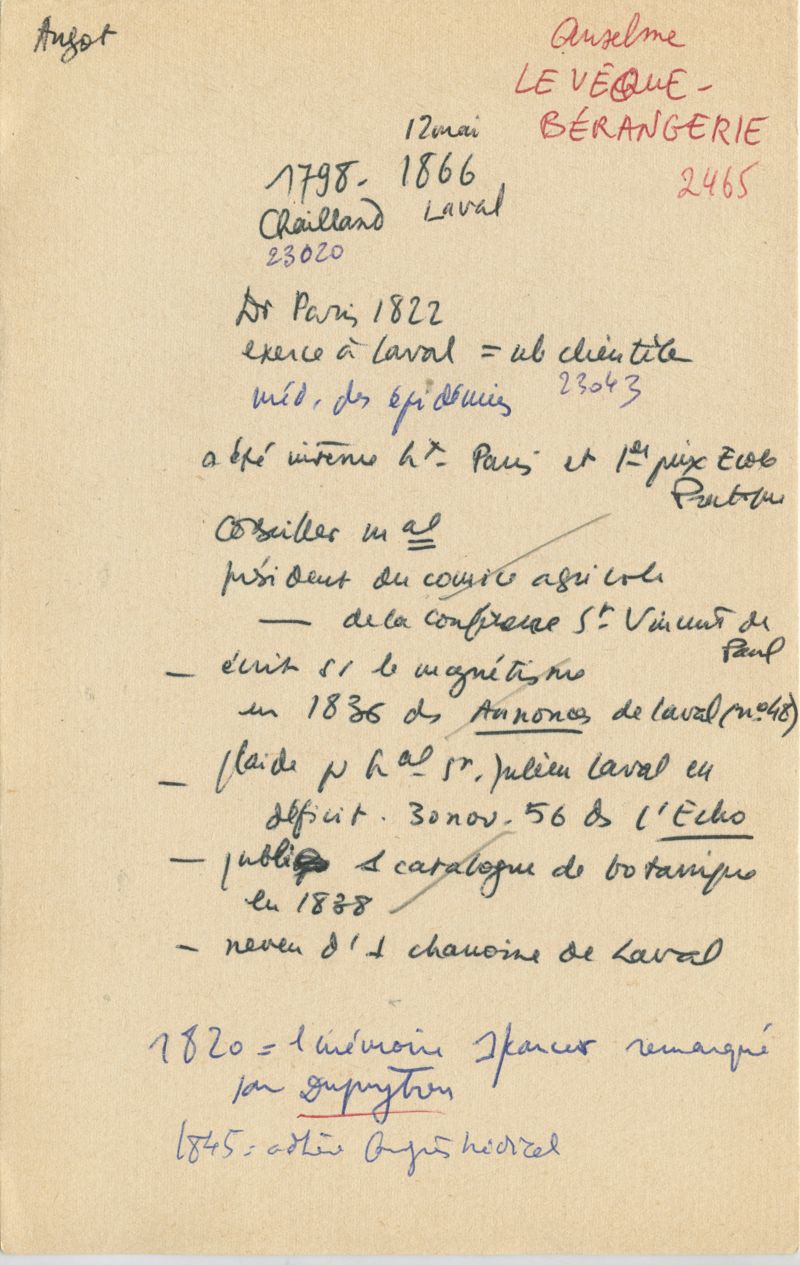 Angot
Anselme
LEVÊQUE-
BÉRANGERIE
2465
12 mai
1798 - 1866
Chailland Laval
23020
Dr Paris 1822
exerce à Laval = nb clientèle
méd. des épidémies 23043
a été interne hx Paris et 1er prix Ecole
Pratique
Conseiller m al
président du comice agricole
— de la conférence St Vincent de
Paul
— écrit sr le magnétisme
en 1836 ds Annonces de Laval (n° 48)
— plaide pr hal St. Julien Laval en
déficit. 30 nov. 56 ds l'Echo
— publie 1 catalogue de botanique
en 1838
— neveu d'1 chanoine de Laval
1820 = 1 mémoire remarqué
par Dupuytren
1845 = adhère Congrès médical